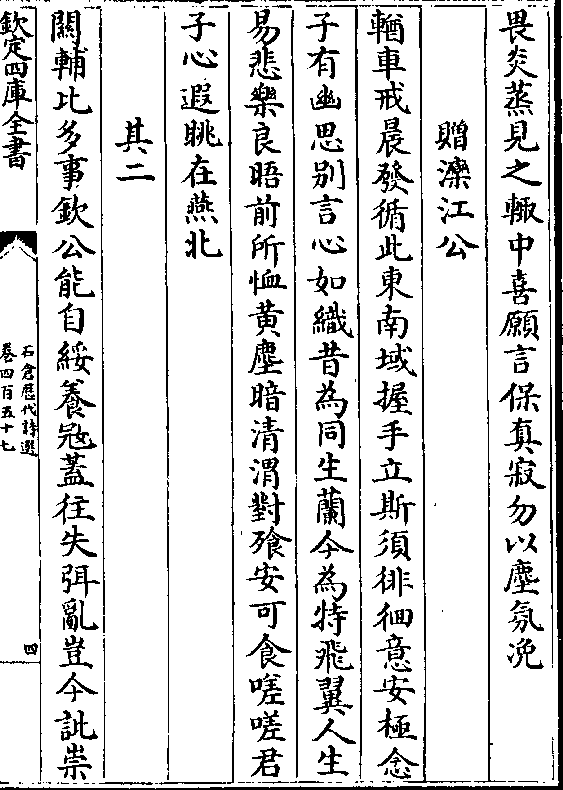 畏炎蒸見之輙中喜願言保真寂勿以塵氛浼
贈灤江公
輶車戒晨發循此東南域握手立斯須徘徊意安極念
子有幽思别言心如織昔為同生蘭今為特飛翼人生
易悲樂良晤前所恤黄塵暗清渭對飱安可食嗟嗟君
子心遐眺在燕北
其二
關輔比多事欽公能自綏養㓂蓋徃失弭亂豈今訿崇
欽定四庫全書
石倉歷代詩選
卷四百五十七
四